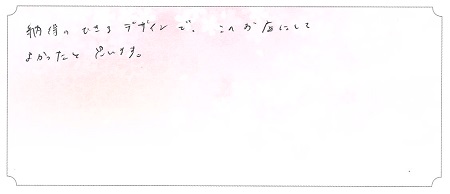 納得のできるデザインで、このお店にして
よかったと思います。